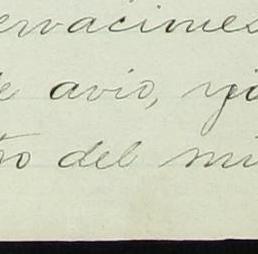 ervaciones
de avio, y
tro del mi